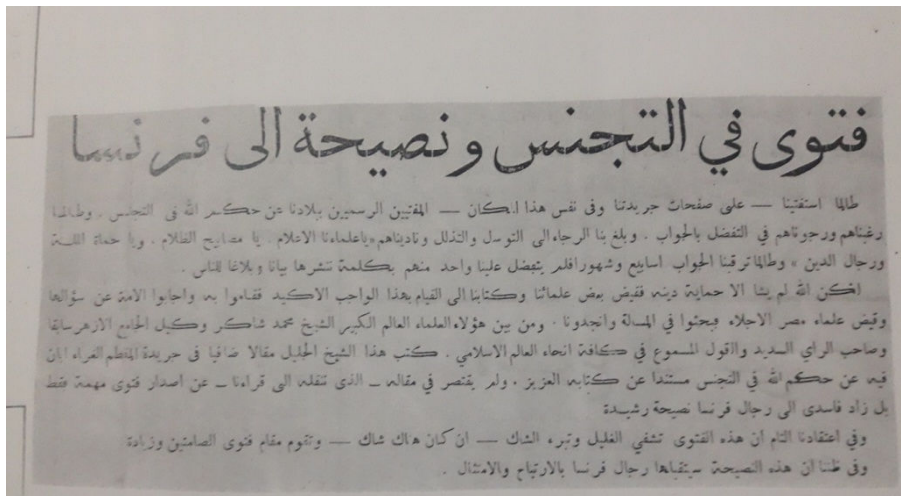 فتوى في التجنس ونصيحة الى فرنسا
طالما استفتينا — على صفحات جريدتنا وفى نفس هذا المكان — المفتيين الرسميين ببلادنا عن حكم الله فى التجنس . وطالما
رغبناهم ورجوناهم في التفضل بالجواب . وبلغ بنا الرجاء الى التوسل والتذلل وناديناهم «ياعلماءنا الاعلام . يا مصابيح الظلام . ويا حماة الملة
ورجال الدين » وطالما ترقبنا الجواب اسابيع وشهورا فلم يتفضل علينا واحد منهم بكلمة ننشرها بيانا وبلاغا للناس .
لكن الله لم يشا الا حماية دينه فقيض بعض علمائنا وكتابنا الى القيام بهذا الواجب الاكيد فقاموا به واجابوا الامة عن سؤالها
وقيض علماء مصر الاجلاء فبحثوا في المسالة وانجدونا . ومن بين هؤلاء العلماء العالم الكبير الشيخ محمد شاكر وكيل الجامع الازهر سابقا
وصاحب الراي السديد والقول المسموع في كافة انحاء العالم الاسلامي . كتب هذا الشيخ الجليل مقالا ضافيا فى جريدة المقطم الغراء ابان
فيه عن حكم الله في التجنس مستندا عن كتابه العزيز . ولم يقتصر في مقاله — الذى ننقله الى قراءنا — عن اصدار فتوى مهمة فقط
بل زاد فاسدى الى رجال فرنسا نصيحة رشيدة
وفي اعتقادنا التام ان هذه الفتوى تشفي الغليل وتبرء الشك — ان كان هناك شاك — وتقوم مقام فتوى الصامتين وزيادة
وفى ظننا ان هذه النصيحة سيتلقاها رجال فرنسا بالارتياح والامتثال .